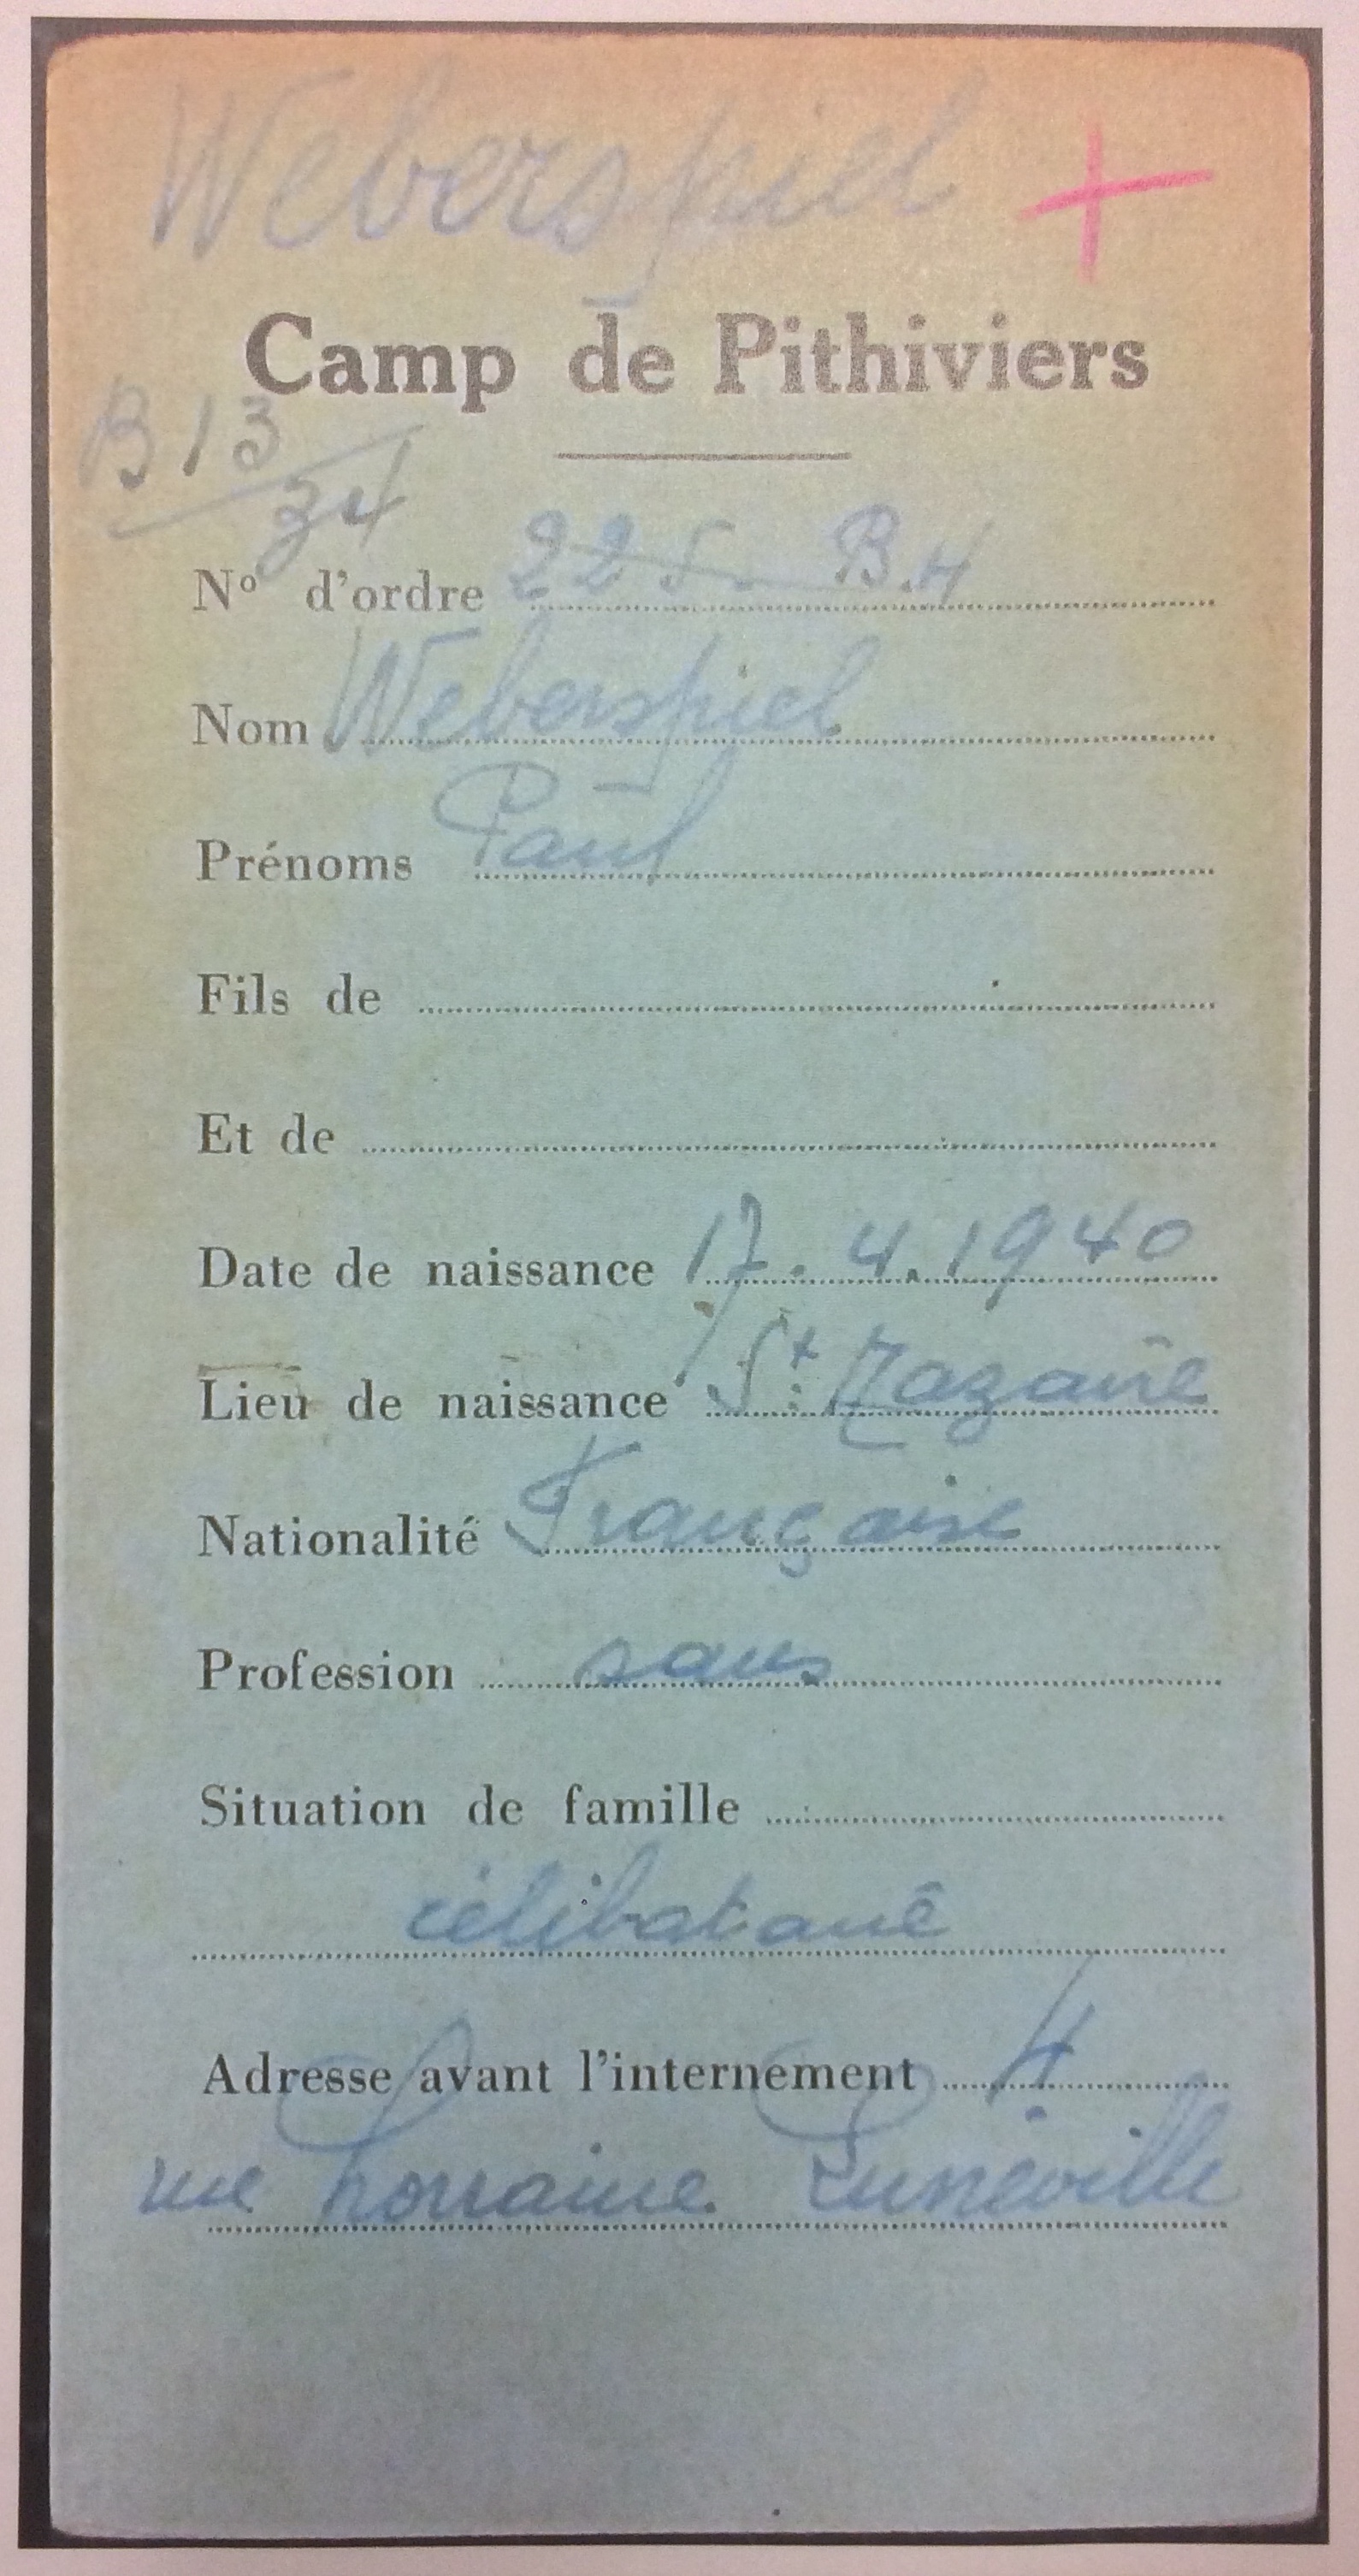 Weberspiel +
Camp de Pithiviers
B13
34
N° d'ordre 225 B.4
Nom Weberspiel
Prénoms Paul
Fils de
Et de
Date de naissance 17.4.1940
Lieu de naissance St Nazaire
Nationalité Française
Profession sans
Situation de famille
célibataire
Adresse avant l'internement 4
rue Lorraine Lunéville